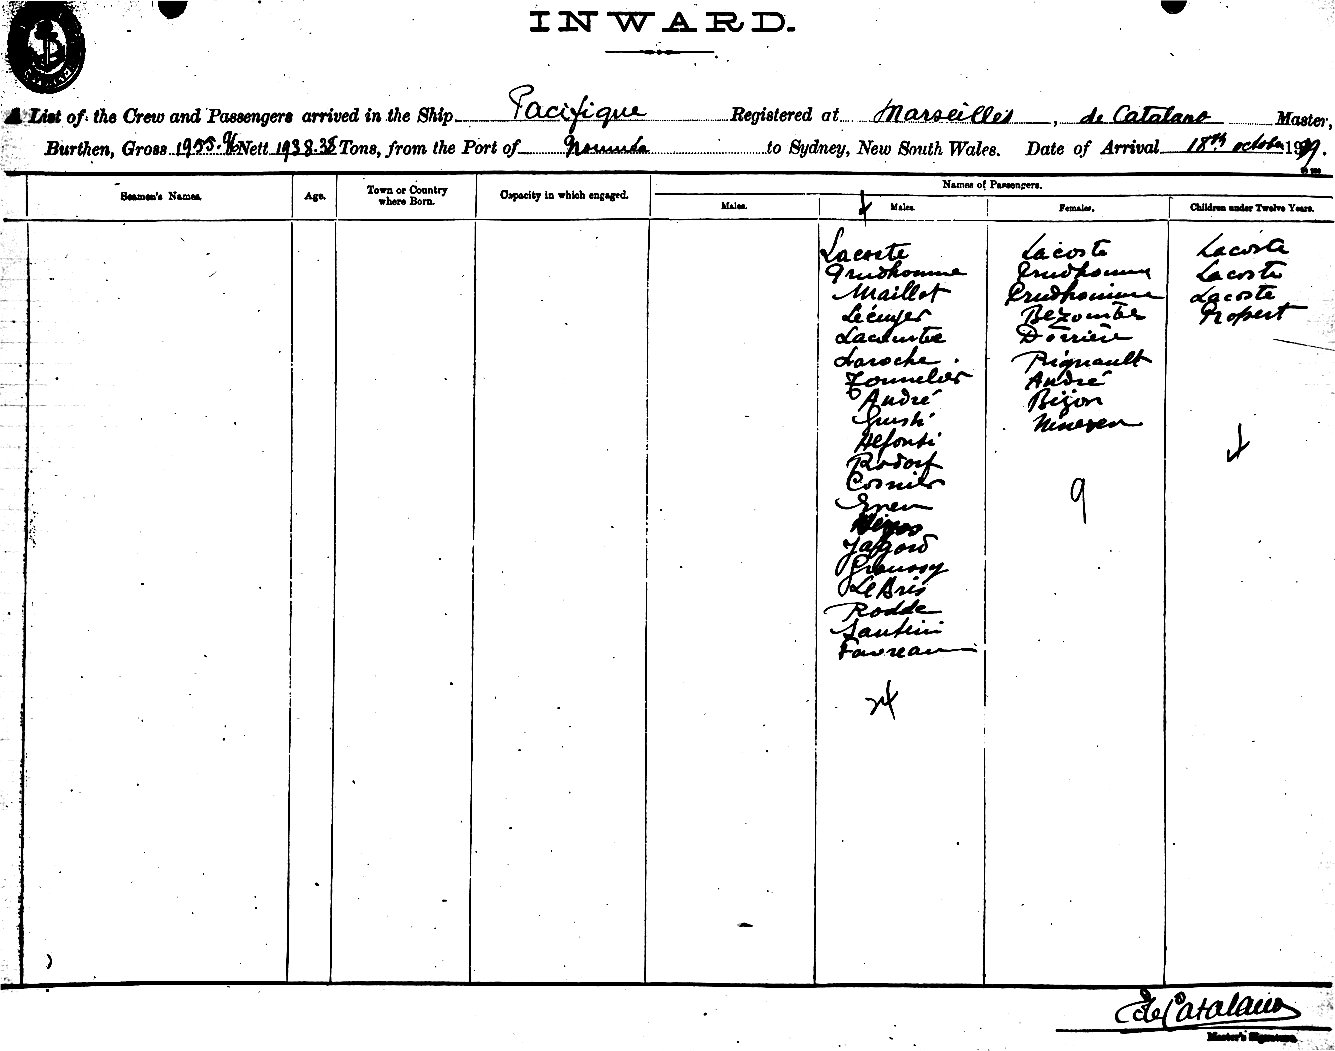 INWARD.
A List of the Crew and Passengers arrived in the Ship Pacifique Registered at Marseilles, de Catalano Master,
Burthen, Gross Nett 1938.38 Tons, from the Port of Nouméa to Sydney, New South Wales. Date of Arrival 18th october 19
Names of Passengers.
Seamen's Names. Age. Town or Country where Born. Capacity in which engaged. Males. Males. Females. Children under Twelve Years.
Lacoste Lacoste Lacoste
Prudhomme Prudhomme Lacoste
Maillot Prudhomme Lacoste
Lécuyer Bezombes Ropert
Lacoustre Dorrière
Laroche Pignault
Tonnelier André
André Bijon
Giusti
Alfonsi
Rodorf
Cosnier
Jaffard
Graussy
Le Bris
Rodde
Santini
Favreau
9
4
24
de Catalano
Master's Signature.